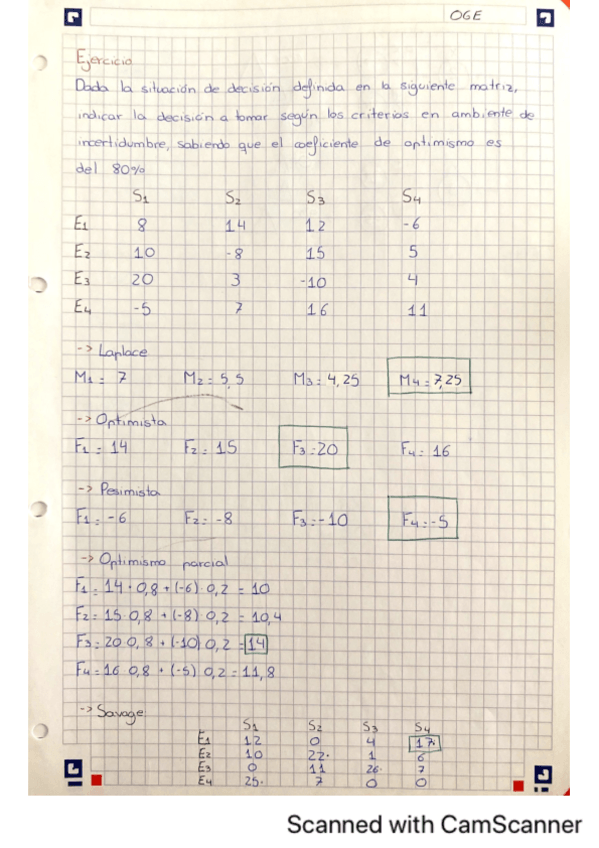 OGE
Ejercicio
Dada la situación de decisión definida en la siguiente matriz,
indicar la decisión a tomar según los criterios en ambiente de
incertidumbre, sabiendo que el coeficiente de optimismo es
del 80%
S1 S2 S3 S4
E1 8 14 12 -6
E2 10 -8 15 5
E3 20 3 -10 4
E4 -5 7 16 11
-> Laplace
M1 = 7 M2 = 5,5 M3 = 4,25 M4 = 7,25
-> Optimista
F1 = 14 F2 = 15 F3 = 20 F4 = 16
-> Pesimista
F1 = -6 F2 = -8 F3 = -10 F4 = -5
-> Optimismo parcial
F1 = 14 · 0,8 + (-6) 0,2 = 10
F2 = 15 0,8 + (-8) 0,2 = 10,4
F3 = 20 0,8 + (-10) 0,2 = 14
F4 = 16 0,8 + (-5) 0,2 = 11,8
-> Savage
S1 S2 S3 S4
E1 12 0 4 17·
E2 10 22· 1 6
E3 0 11 26· 7
E4 25· 7 0 0
Scanned with CamScanner